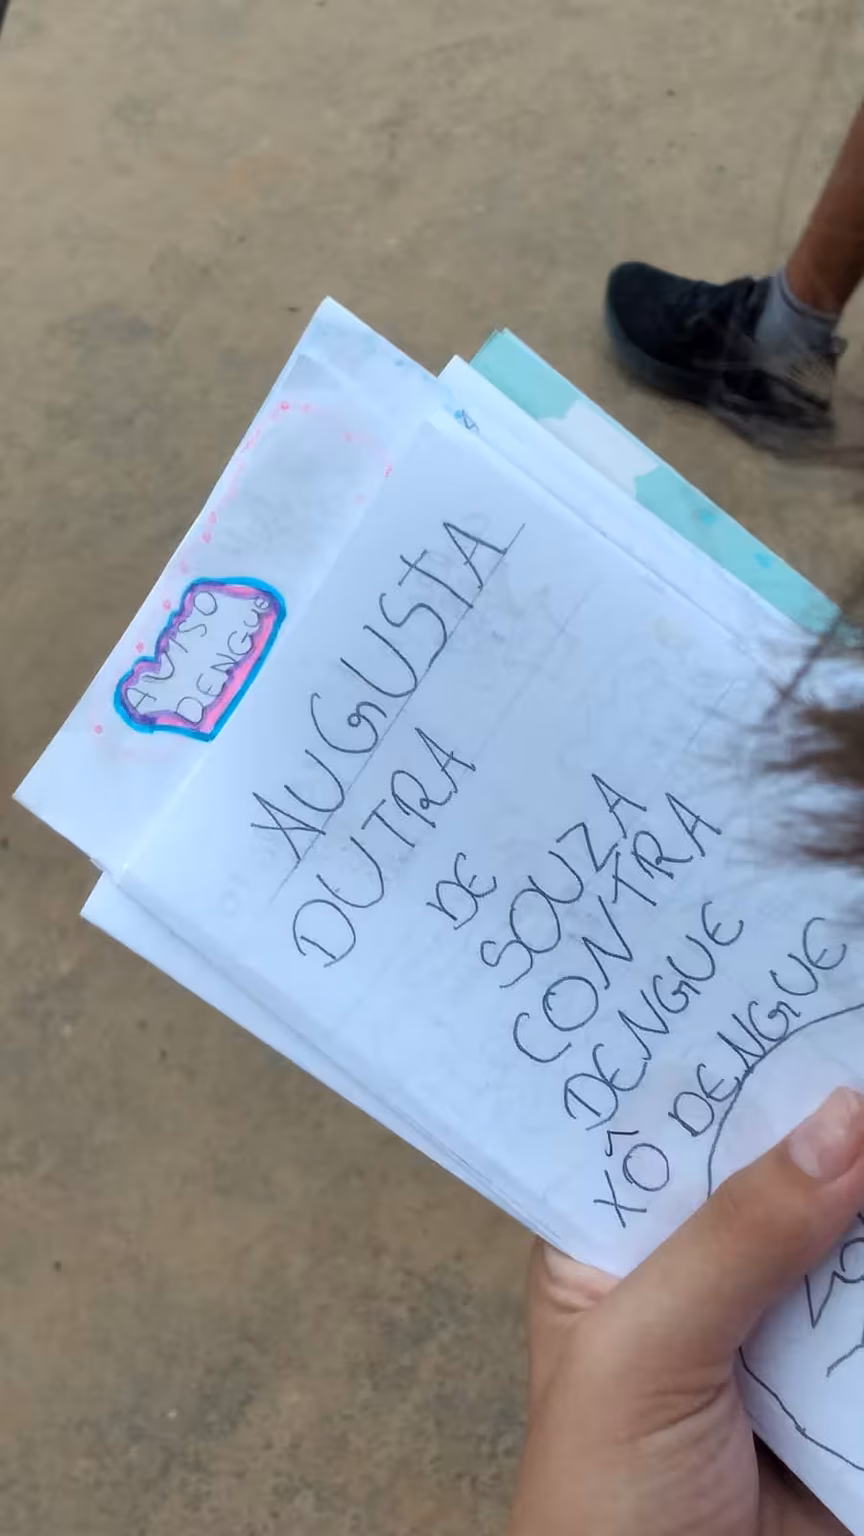 AVISO
DENGUE
AUGUSTA
DUTRA
DE
SOUZA
CONTRA
DENGUE
XÔ DENGUE